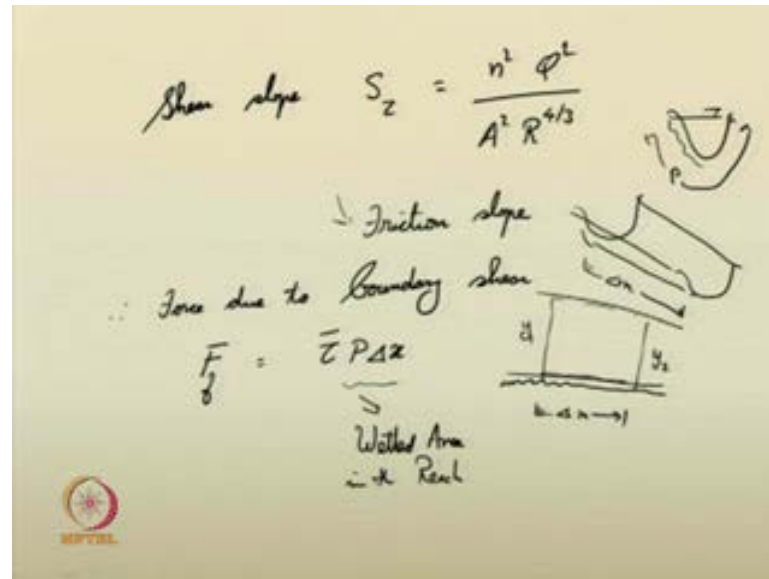 Shear slope S_τ = n² Q² / A² R^4/3
P
Friction slope
Δx
∴ Force due to boundary shear
F̄_f = τ̄ P Δx
y₁ y₂
Δx
Wetted Area
in the Reach
NPTEL